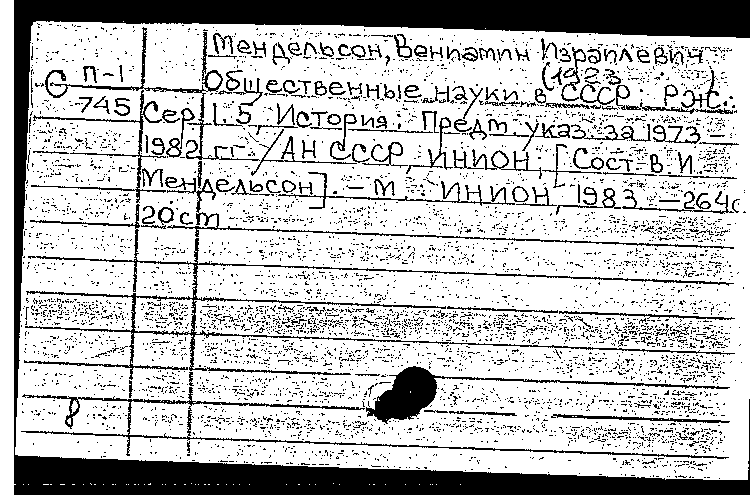 Мендельсон, Вениамин Израилевич
(1923 )
С П-1 Общественные науки в СССР: РЖ.:
745 Сер. 1.5, История: Предм. указ. за 1973 –
1982 гг. / АН СССР, ИНИОН; [Сост. В.И.
Мендельсон]. – М.: ИНИОН, 1983. – 264с
20 см
8